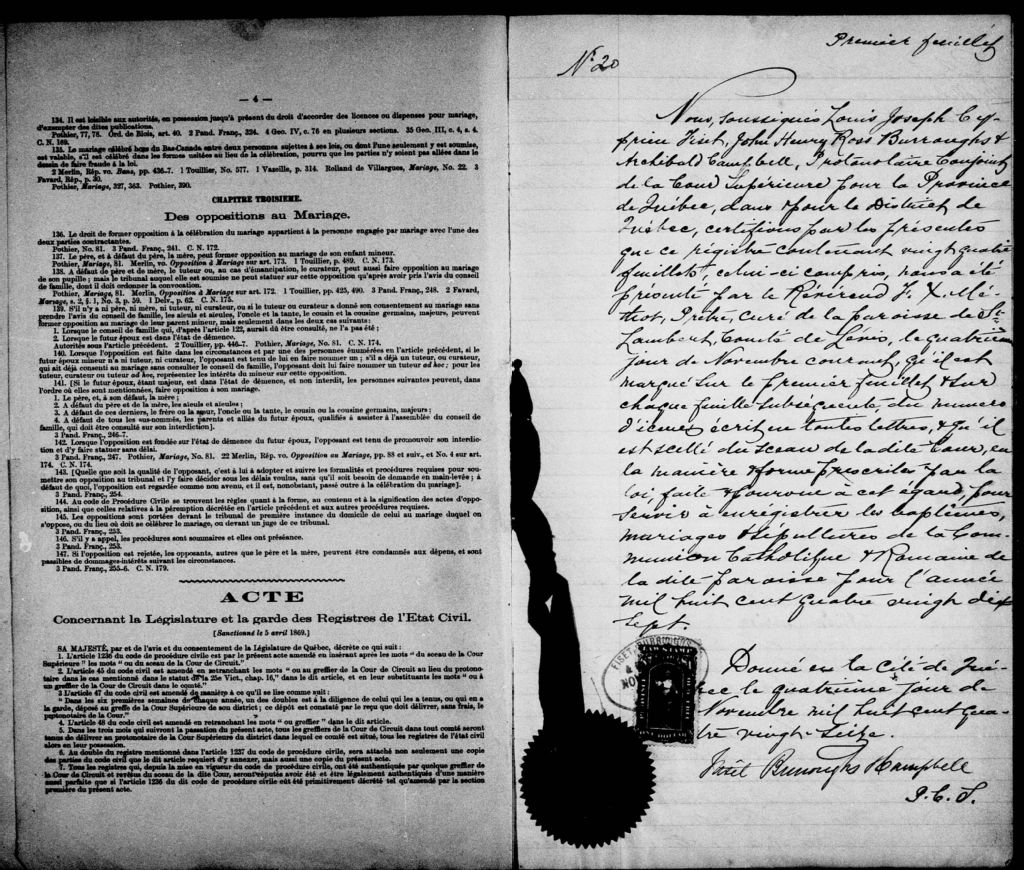 — 4 —
134. Il est loisible aux autorités, en possession jusqu'à présent du droit d'accorder des licences ou dispenses pour mariage,
d'exempter des dites publications.
Pothier, 77, 78. Ord. de Blois, art. 40. 2 Pand. Franç., 324. 4 Geo. IV, c. 76 en plusieurs sections. 35 Geo. III, c. 4, s. 4.
C. N. 169.
135. Le mariage célébré hors du Bas-Canada entre deux personnes sujettes à ses lois, ou dont l'une seulement y est soumise,
est valable, s'il est célébré dans les formes usitées au lieu de la célébration, pourvu que les parties n'y soient pas allées dans le
dessein de faire fraude à la loi.
2 Merlin, Rép. vo. Bans, pp. 436-7. 1 Touillier, No. 577. 1 Vazeille, p. 314. Rolland de Villargues, Mariage, No. 22. 3
Favard, Rép., p. 30.
Pothier, Mariage, 327, 363. Pothier, 390.
CHAPITRE TROISIEME.
Des oppositions au Mariage.
136. Le droit de former opposition à la célébration du mariage appartient à la personne engagée par mariage avec l'une des
deux parties contractantes.
Pothier, No. 81. 3 Pand. Franç., 241. C. N. 172.
137. Le père, et à défaut du père, la mère, peut former opposition au mariage de son enfant mineur.
Pothier, Mariage, 81. Merlin, vo. Opposition à Mariage sur art. 173. 1 Touillier, p. 489. C. N. 173.
138. A défaut de père et de mère, le tuteur ou, au cas d'émancipation, le curateur, peut aussi faire opposition au mariage
de son pupille; mais le tribunal auquel elle est soumise ne peut statuer sur cette opposition qu'après avoir pris l'avis du conseil
de famille, dont il doit ordonner la convocation.
Pothier, Mariage, 81. Merlin, Opposition à Mariage sur art. 172. 1 Touillier, pp. 425, 490. 3 Pand. Franç., 248. 2 Favard,
Mariage, s. 2, § 1, No. 3, p. 59. 1 Delv., p. 62. C. N. 175.
139. S'il n'y a ni père, ni mère, ni tuteur, ni curateur, ou si le tuteur ou curateur a donné son consentement au mariage sans
prendre l'avis du conseil de famille, les aïeuls et aïeules, l'oncle et la tante, le cousin et la cousine germains, majeurs, peuvent
former opposition au mariage de leur parent mineur, mais seulement dans les deux cas suivants:
1. Lorsque le conseil de famille qui, d'après l'article 122, aurait dû être consulté, ne l'a pas été;
2. Lorsque le futur époux est dans l'état de démence.
Autorités sous l'article précédent. 2 Touillier, pp. 446-7. Pothier, Mariage, No. 81. C. N. 174.
140. Lorsque l'opposition est faite dans les circonstances et par une des personnes énumérées en l'article précédent, si le
futur époux mineur n'a ni tuteur, ni curateur, l'opposant est tenu de lui en faire nommer un; s'il a déjà un tuteur, ou curateur,
qui ait déjà consenti au mariage sans consulter le conseil de famille, l'opposant doit lui faire nommer un tuteur ad hoc; pour les
tuteur, curateur ou tuteur ad hoc, représenter les intérêts du mineur sur cette opposition.
141. [Si le futur époux, étant majeur, est dans l'état de démence, et non interdit, les personnes suivantes peuvent, dans
l'ordre où elles sont mentionnées, faire opposition à son mariage.
1. Le père, et, à son défaut, la mère;
2. A défaut du père et de la mère, les aïeuls et aïeules;
3. A défaut de ces derniers, le frère ou la sœur, l'oncle ou la tante, le cousin ou la cousine germains, majeurs;
4. A défaut de tous les sus-nommés, les parents et alliés du futur époux, qualifiés à assister à l'assemblée du conseil de
famille, qui doit être consulté sur son interdiction].
3 Pand. Franç., 246-7.
142. Lorsque l'opposition est fondée sur l'état de démence du futur époux, l'opposant est tenu de promouvoir son interdic-
tion et d'y faire statuer sans délai.
3 Pand. Franç., 247. Pothier, Mariage, No. 81. 22 Merlin, Rép. vo. Opposition au Mariage, pp. 88 et suiv., et No. 4 sur art.
174. C. N. 174.
143. [Quelle que soit la qualité de l'opposant, c'est à lui à adopter et suivre les formalités et procédures requises pour sou-
mettre son opposition au tribunal et l'y faire décider sous les délais voulus, sans qu'il soit besoin de demande en main-levée; à
défaut de quoi, l'opposition est regardée comme non avenu, et il est, nonobstant, passé outre à la célébration du mariage].
3 Pand. Franç., 254.
144. Au code de Procédure Civile se trouvent les règles quant à la forme, au contenu et à la signification des actes d'oppo-
sition, ainsi que celles relatives à la péremption décrétée en l'article précédent et aux autres procédures requises.
145. Les oppositions sont portées devant le tribunal de première instance du domicile de celui au mariage duquel on
s'oppose, ou du lieu où doit se célébrer le mariage, ou devant un juge de ce tribunal.
3 Pand. Franç., 253.
146. S'il y a appel, les procédures sont sommaires et elles ont préséance.
3 Pand. Franç., 253.
147. Si l'opposition est rejetée, les opposants, autres que le père et la mère, peuvent être condamnés aux dépens, et sont
passibles de dommages-intérêts suivant les circonstances.
3 Pand. Franç., 255-6. C. N. 179.
ACTE
Concernant la Législature et la garde des Registres de l'Etat Civil.
[Sanctionné le 5 avril 1869.]
SA MAJESTÉ, par et de l'avis et du consentement de la Législature de Québec, décrète ce qui suit:
1. L'article 1236 du code de procédure civile est par le présent acte amendé en insérant après les mots " du sceau de la Cour
Supérieure " les mots " ou du sceau de la Cour de Circuit."
2. L'article 45 du code civil est amendé en retranchant les mots " ou au greffier de la Cour de Circuit au lieu du protono-
taire dans le cas mentionné dans le statut de la 25e Vict., chap. 16," dans le dit article, et en leur substituants les mots " ou à
un greffier de la Cour de Circuit dans le comté."
3 L'article 47 du code civil est amendé de manière à ce qu'il se lise comme suit:
" Dans les six premières semaines de chaque année, un des doubles est à la diligence de celui qui les a tenus, ou qui en a
la garde, déposé au greffe de la Cour Supérieure de son district; ce dépôt est constaté par le reçu que doit délivrer, sans frais, le
protonotaire de la Cour."
4. L'article 48 du code civil est amendé en retranchant les mots " ou greffier " dans le dit article.
5. Dans les trois mois qui suivront la passation du présent acte, tous les greffiers de la Cour de Circuit dans tout comté seront
tenus de délivrer au protonotaire de la Cour Supérieure du district dans lequel ce comté est situé, tous les registres de l'état civil
alors en leur possession.
6. Au double du registre mentionné dans l'article 1237 du code de procédure civile, sera attaché non seulement une copie
des parties du code civil que le dit article requiert d'y annexer, mais aussi une copie du présent acte.
7. Tous les registres qui, depuis la mise en vigueur du code de procédure civile, ont été authentiqués par quelque greffier de
la Cour de Circuit et revêtus du sceau de la dite Cour, seront réputés avoir été et être légalement authentiqués d'une manière
aussi parfaite que si l'article 1236 du dit code de procédure civile eût été primitivement décrété tel qu'amendé par la section
première du présent acte.
Premier feuillet
No 20
Nous, soussignés Louis Joseph Cy-
prien Fiset, John Henry Ross Burroughs &
Archibald Campbell, Protonotaire Conjoint
de la Cour Supérieure pour la Province
de Québec, dans & pour le District de
Québec, certifions par les présentes
que ce registre contenant vingt quatre
feuillets, celui-ci compris, nous a été
présenté par le Révérend F. X. Mé-
thot, Prêtre, Curé de la paroisse de St
Lambert, Comté de Lévis, le quatrième
jour de Novembre courant, qu'il est
marqué sur le premier feuillet & sur
chaque feuille subséquente, du numéro
d'icelui écrit en toutes lettres, & qu'il
est scellé du sceau de la dite Cour, en
la manière & forme prescrites par la
loi, faite & pourvue à cet égard, pour
servir à enregistrer les baptêmes,
mariages & sépultures de la Com-
munion Catholique & Romaine de
la dite paroisse pour l'année
mil huit cent quatre vingt dix
sept.
Donné en la cité de Qué-
bec le quatrième jour de
Novembre mil huit cent qua-
tre vingt-seize.
Fiset Burroughs & Campbell
P. C. S.
FISET, BURROUGHS
4
NOV
LAW STAMP